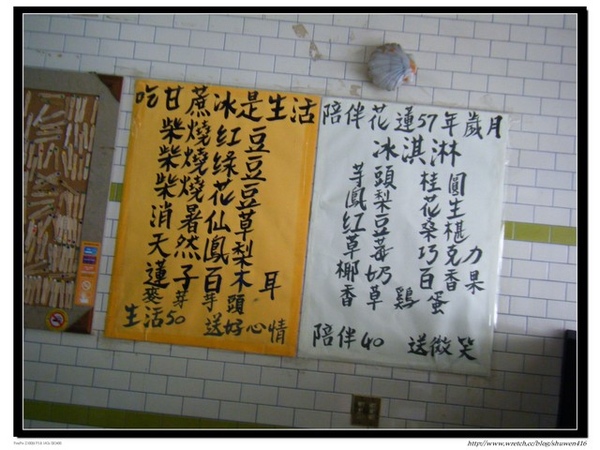 吃甘蔗冰是生活
柴燒紅豆
柴燒綠豆
柴燒花豆
消暑仙草
天然鳳梨
蓮子百木耳
麥芽芋頭
生活50 送好心情
陪伴花蓮57年歲月
冰淇淋
芋頭 桂圓
鳳梨 花生
紅豆 桑椹
草莓 巧克力
椰奶 百香果
香草 雞蛋
陪伴40 送微笑
http://www.wretch.cc/blog/shuwen416